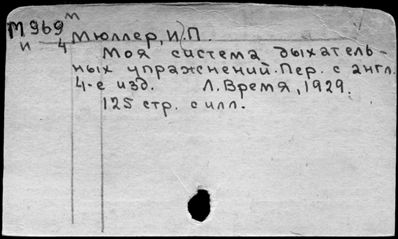 М969 м
и 4 Мюллер, И.П.
Моя система дыхатель-
ных упражнений. Пер. с англ.
4-е изд. Л. Время, 1929.
125 стр. с илл.